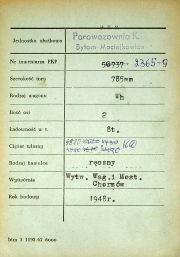 Jednostka służbowa Parowozownia K.
Bytom Maciejkowice
Nr inwentarza PKP 2365-9
Szerokość toru 785mm
Rodzaj wagonu Wh
Ilość osi 2
Ładowność w t. 8t.
Ciężar własny
Rodzaj hamulca ręczny
Wytwórnia Wytw. Wag. i Most.
Chorzów
Rok budowy 1948r.